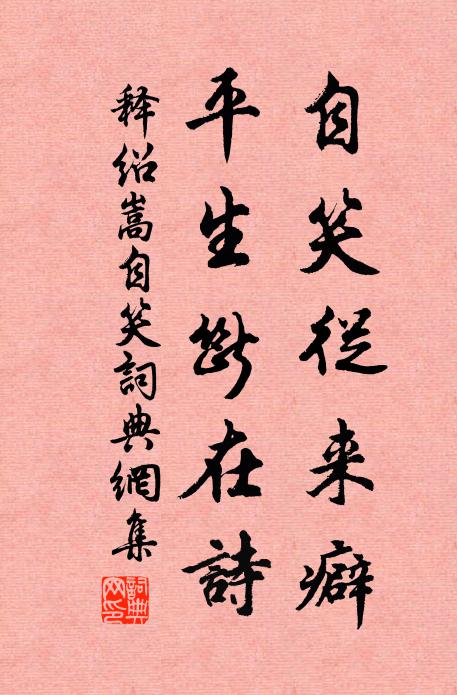 自笑從来癖
平生斷在詩
释绍嵩自笑詞典網集
詞典
网印